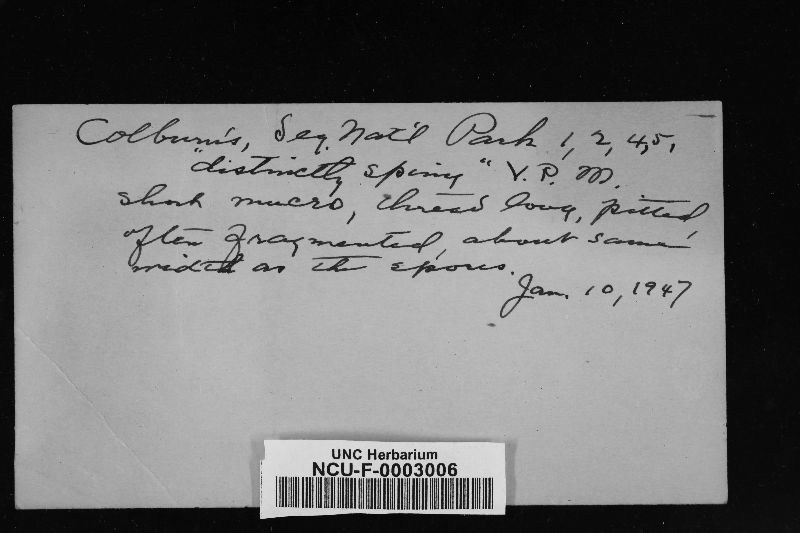 Colburn's, Seq. Nat'l Park 1, 2, 4, 5,
"distinctly spiny" V. P. M.
short mucro, thread long, pitted,
often fragmented, about same
width as the spores.
Jan. 10, 1947
UNC Herbarium
NCU-F-0003006